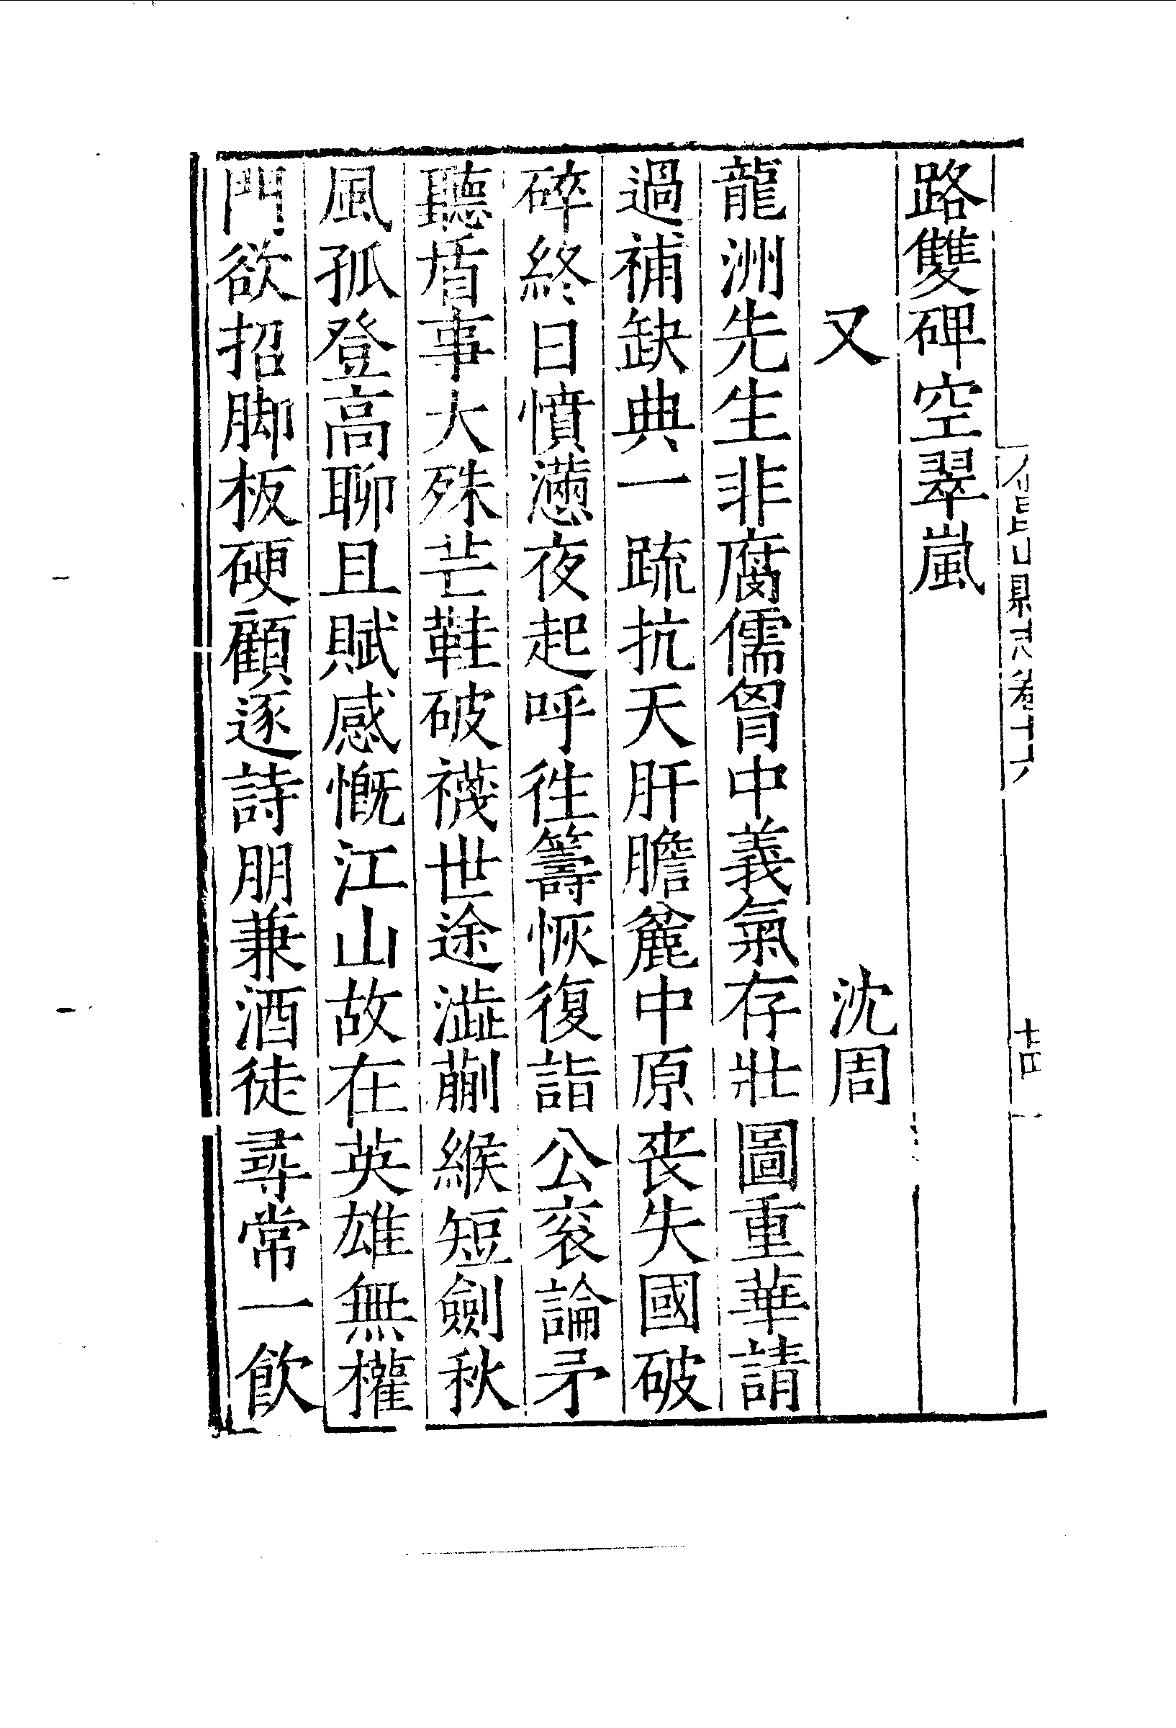 路雙碑空翠嵐
又　沈周
龍洲先生非腐儒胷中義氣存壯圖重華請
過補缺典一疏抗天肝膽麄中原丧失國破
碎終日憤懣夜起呼徃籌恢復詣公衮論矛
聽盾事大殊芒鞋破襪世途澁蒯緱短劍秋
風孤登高聊且賦感慨江山故在英雄無權
門欲招脚板硬顧逐詩朋兼酒徒尋常一飲
山縣志卷十六
十四